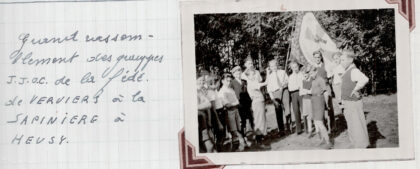 Grand rassem-
blement des groupes
J.J.O.C. de la féd.
de VERVIERS à la
SAPINIÈRE à
HEUSY.